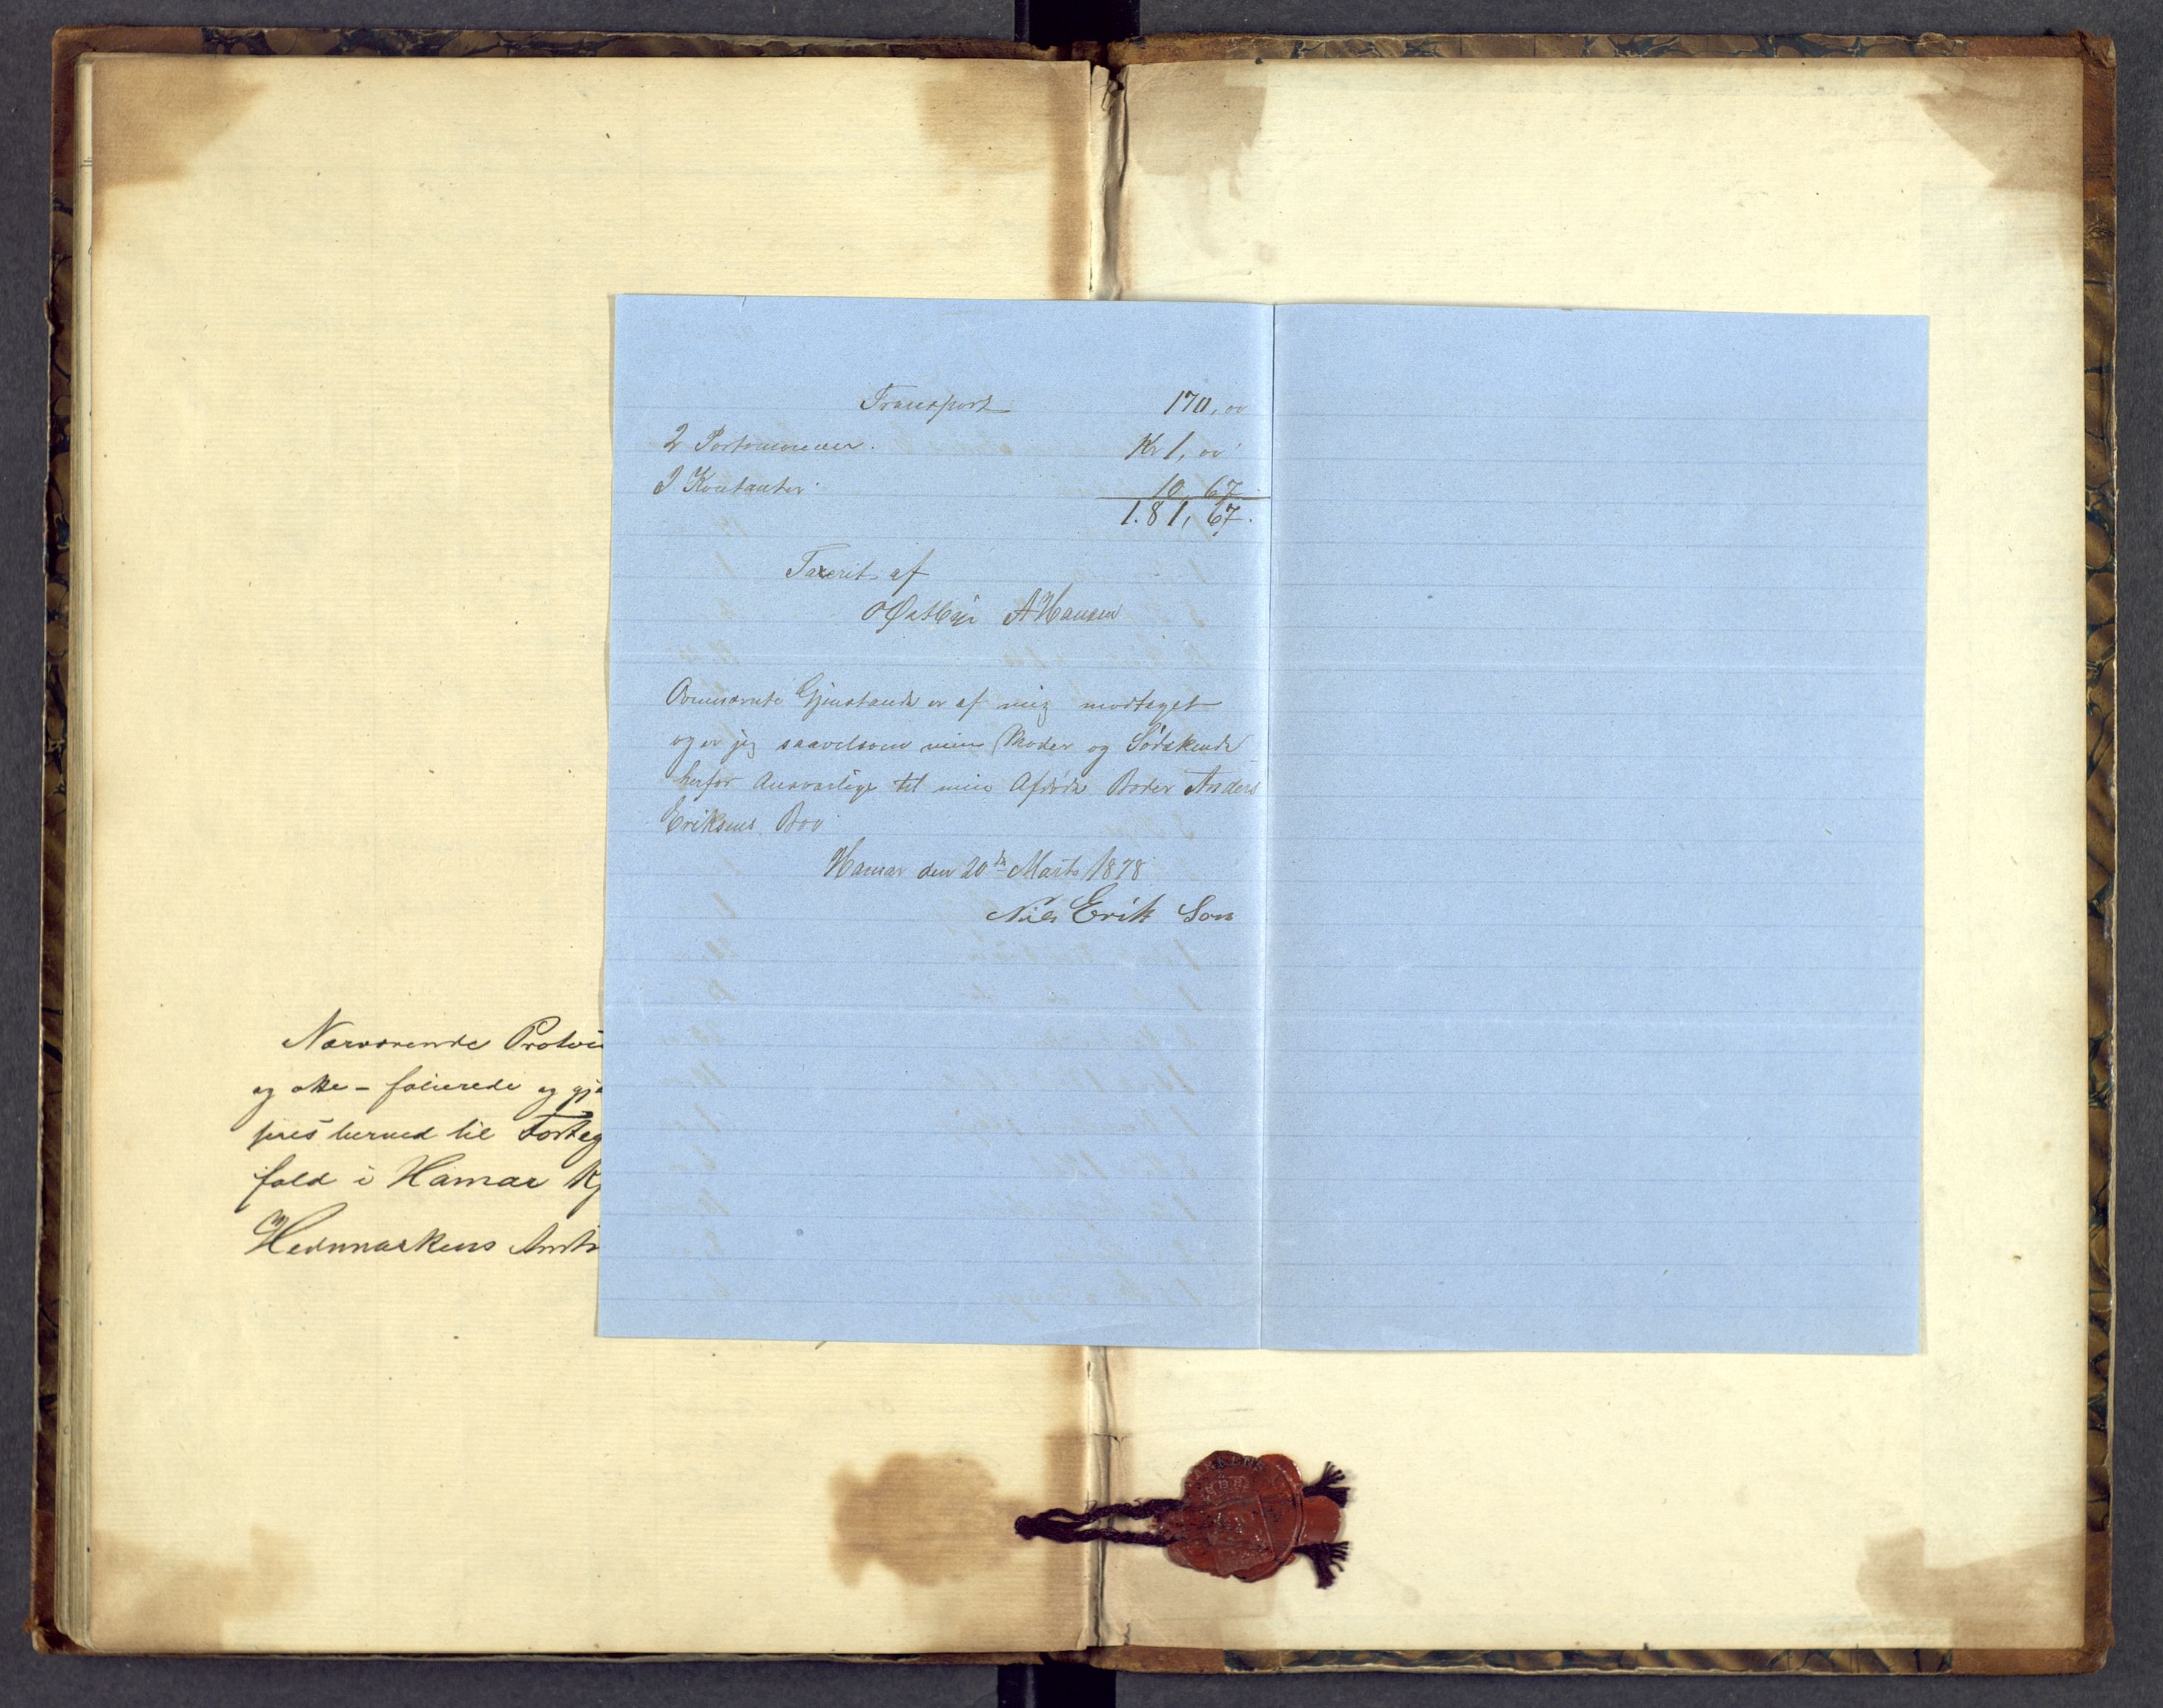 Transport 170, 00
2 Portemonnaer. Kr 1, 00
I Kontanter 10, 67
1.81, 67.
Taxerit af
O Østbye A Hansen
Ovennævnte Gjenstande er af mig modtaget
og er jeg saavelsom min Moder og Södskende
herfor Ansvarlige til min Afdöde Broder Anders
Eriksens Boo
Hamar den 20de Marts 1878
Nils Erik Son
Nærværende Proto
og otte - folierede og gj
res herved til Forteg
fald i Hamar Kj
Hedemarkens Amts